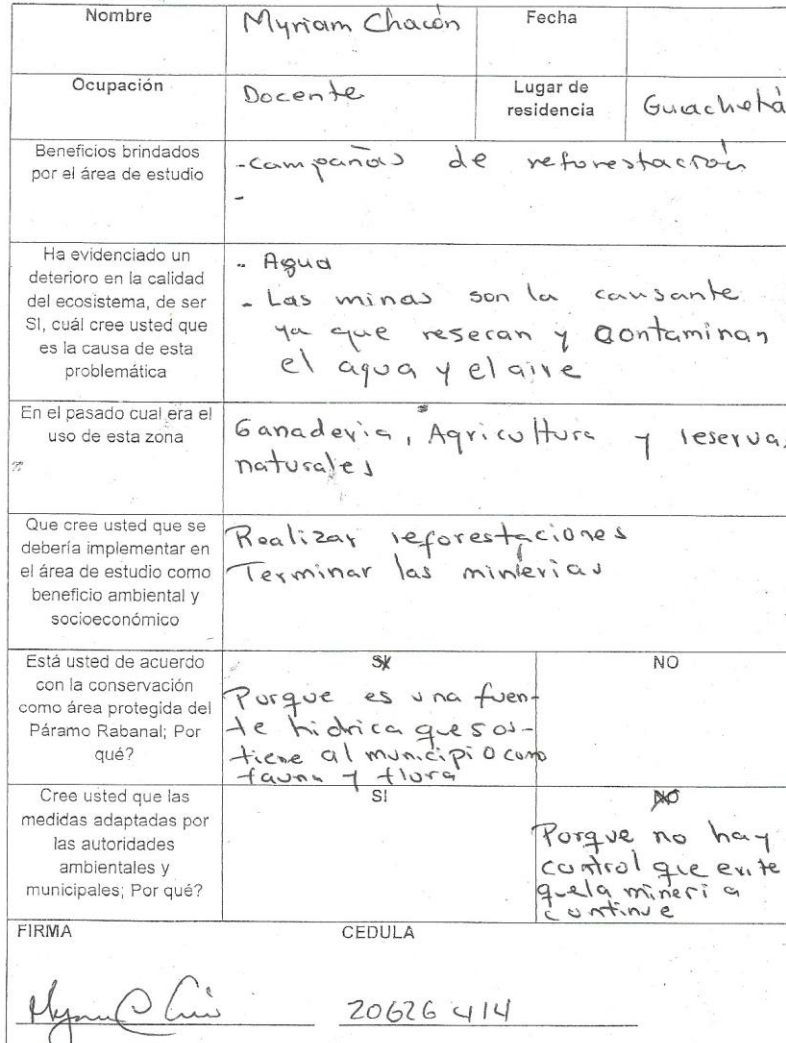 Nombre
Myriam Chacón
Fecha
Ocupación
Docente
Lugar de
residencia
Guachetá
Beneficios brindados
por el área de estudio
- Campañas de reforestación
-
Ha evidenciado un
deterioro en la calidad
del ecosistema, de ser
SI, cuál cree usted que
es la causa de esta
problemática
- Agua
- Las minas son la causante
ya que resecan y contaminan
el agua y el aire
En el pasado cual era el
uso de esta zona
Ganaderia, Agricultura y reservas
naturales
Que cree usted que se
debería implementar en
el área de estudio como
beneficio ambiental y
socioeconómico
Realizar reforestaciones
Terminar las minierias
Está usted de acuerdo
con la conservación
como área protegida del
Páramo Rabanal; Por
qué?
SI
Porque es una fuen-
te hidrica que sos-
tiene al municipio como
fauna y flora
NO
Cree usted que las
medidas adaptadas por
las autoridades
ambientales y
municipales; Por qué?
SI
NO
Porque no hay
control que evite
que la mineria
continue
FIRMA
CEDULA
20626414